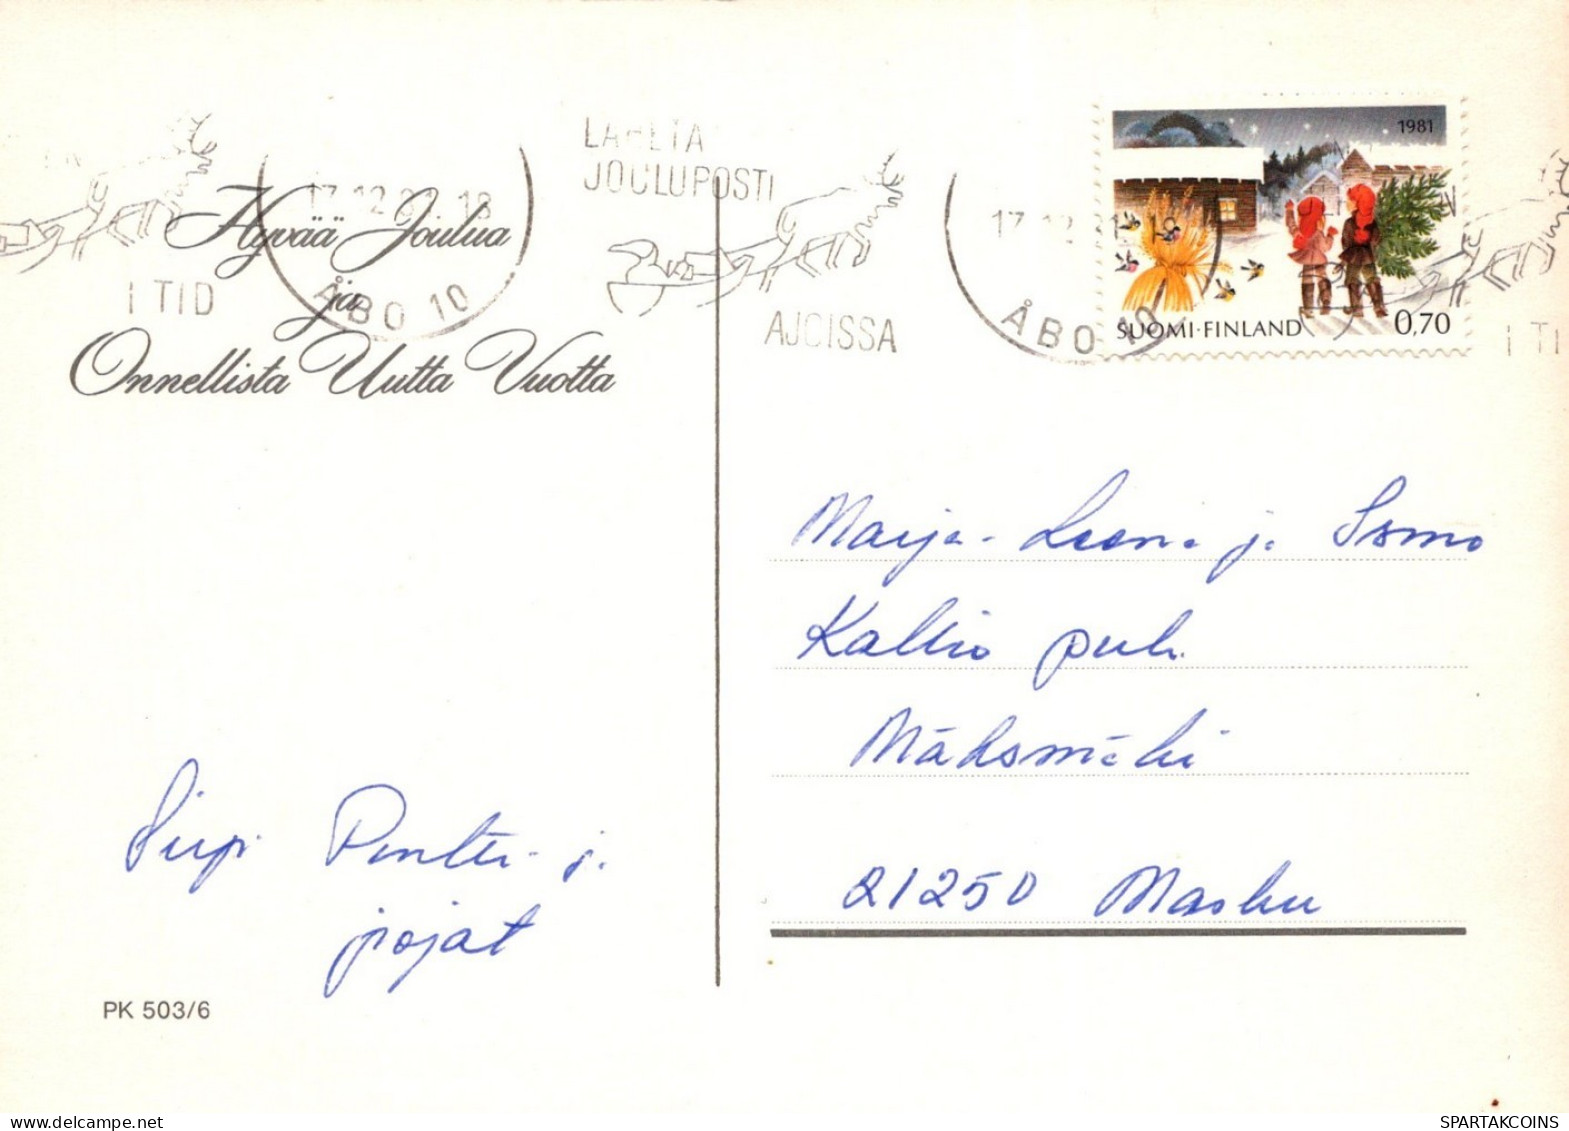 LÄHETÄ
JOULUPOSTI
AJOISSA
I TID
17.12.81.18
ÅBO 10
17.12.81.18
ÅBO 10
I TI
1981
SUOMI-FINLAND 0,70
Hyvää Joulua
ja
Onnellista Uutta Vuotta
Maija-Leena ja Ismo
Kallio perh.
Mäksmäki
21250 Masku
Sirpi Pentti ja
pojat
PK 503/6
SPARTAKCOINS